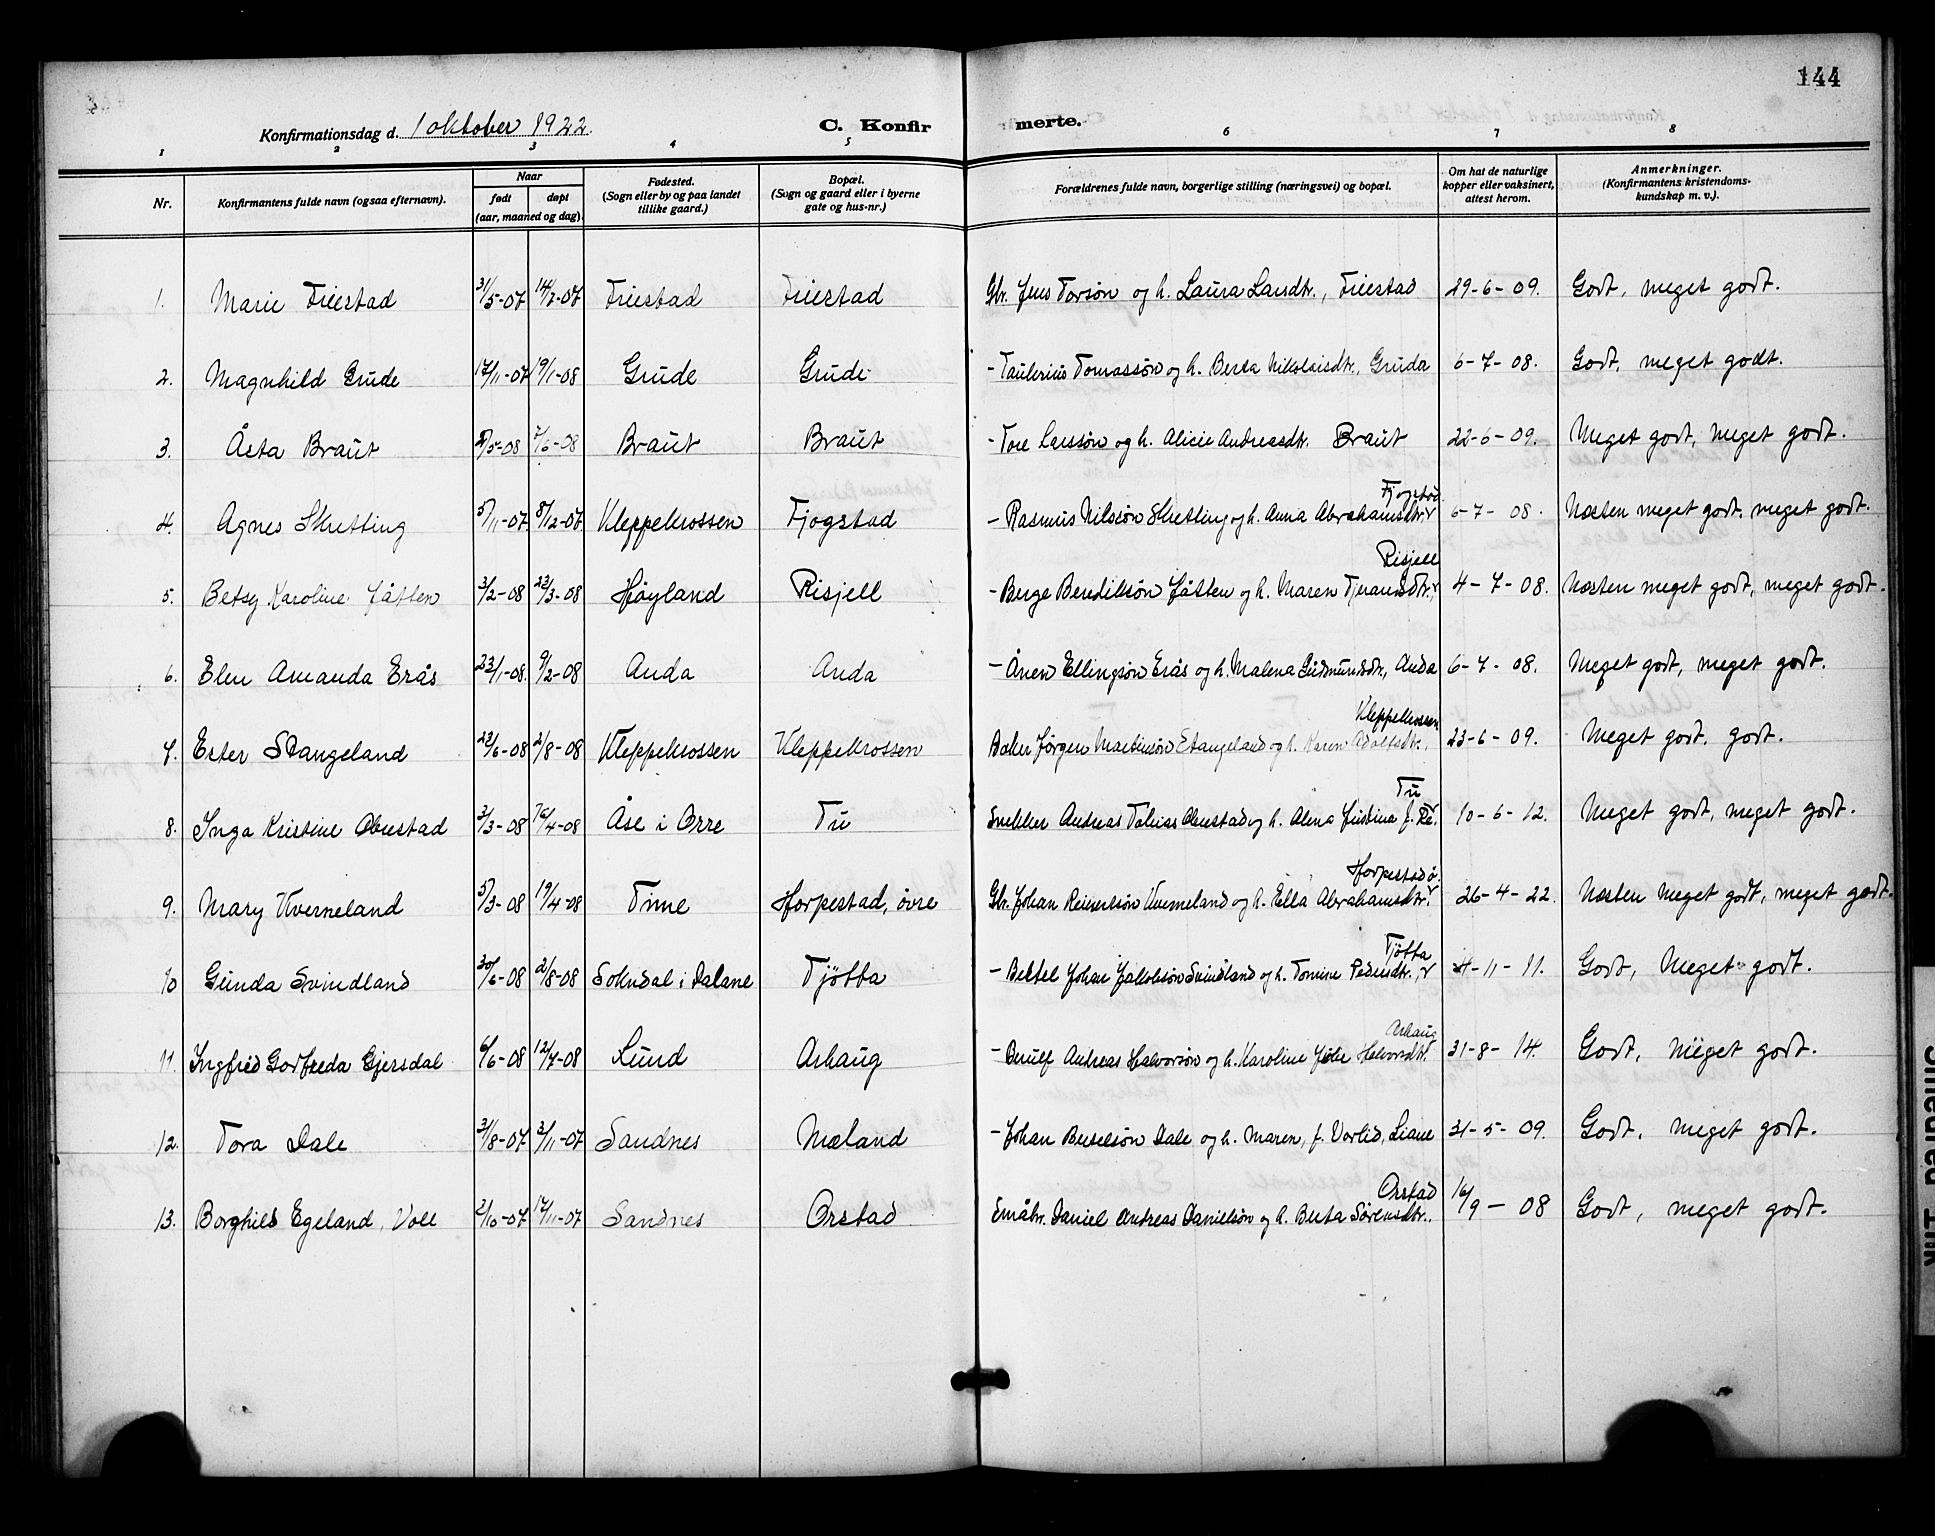 144
Konfirmationsdag d. 1 oktober 1922.
C. Konfirmerte.
1 2 3 4 5 6 7 8
Nr.
Konfirmantens fulde navn (ogsaa efternavn).
Naar
født døpt
(aar, maaned og dag).
Fødested.
(Sogn eller by og paa landet
tillike gaard.)
Bopæl.
(Sogn og gaard eller i byerne
gate og hus-nr.)
Forældrenes fulde navn, borgerlige stilling (næringsvei) og bopæl.
Om hat de naturlige
kopper eller vaksinert,
attest herom.
Anmerkninger.
(Konfirmantens kristendoms-
kundskap m. v.).
1. Marie Friestad 31/5-07 14/7-07 Friestad Friestad Gbr. Jens Torsøn og h. Laura Larsdtr., Friestad 29-6-09. Godt, meget godt.
2. Magnhild Grude 17/11-07 19/1-08 Grude Grude - Taulerius Tomassøn og h. Berta Nikolaisdtr., Gruda 6-7-08. Godt, meget godt.
3. Åsta Braut /5-08 7/6-08 Braut Braut - Tore Larssøn og h. Alice Andreasdtr. Braut 22-6-09. Meget godt, meget godt.
Fjogstad
4. Agnes Skretting 5/11-07 8/12-07 Kleppekrossen Fjogstad - Rasmus Nilssøn Skretting og h. Anna Abrahamsdtr. 6-7-08. Næsten meget godt, meget godt.
Risjell
5. Betsy Karoline Jåtten 3/2-08 22/3-08 Høyland Risjell - Berge Bendiksøn Jåtten og h. Maren Tjeransdtr., 4-7-08. Næsten meget godt, meget godt.
6. Elen Amanda Erås 23/1-08. 9/2-08 Anda Anda - Ånen Ellingsøn Erås og h. Malena Gudmundsdtr., Anda 6-7-08. Meget godt, meget godt.
Kleppekrossen
7. Ester Stangeland 22/6-08 2/8-08 Kleppekrossen Kleppekrossen Baker Jørgen Martinsøn Stangeland og h. Karen Adolfsdtr., 23-6-09. Meget godt, godt.
Tu
8. Inga Kristine Obrestad 3/3-08 16/4-08 Åse i Orre Tu Snekker Andreas Tobias Obrestad og h. Alena Justina f. Re. 10-6-12. Meget godt, meget godt.
Horpestad ø.
9. Mary Kverneland 5/3-08 19/4-08 Time Horpestad, øvre Gbr. Johan Reinertsøn Kverneland og h. Ella Abrahamsdtr. 26-4-22. Næsten meget godt, meget godt.
Tjøtta
10 Gunda Svindland 30/6-08 2/8-08 Sokndal i Dalane Tjøtta - Bertel Johan Jakobsøn Svindland og h. Tomine Pedersdtr., 4-11-11. Godt, meget godt.
Arhaug
11. Ingfrid Godfreda Gjersdal 6/6-08 12/7-08 Lund Arhaug - Berulf Andreas Halvorsøn og h. Karoline Halvorsdtr. 31-8-14. Godt, meget godt.
12. Tora Dale 31/8-07 3/11-07 Sandnes Mæland - Johan Bertelsøn Dale og h. Maren, f. Varlid, Liane 31-5-09. Godt, meget godt.
Orstad
13. Borghild Egeland, Voll 2/10-07 17/11-07 Sandnes Orstad Småbr. Daniel Andreas Danielsøn og h. Berta Sørensdtr., 16/9-08 Godt, meget godt.